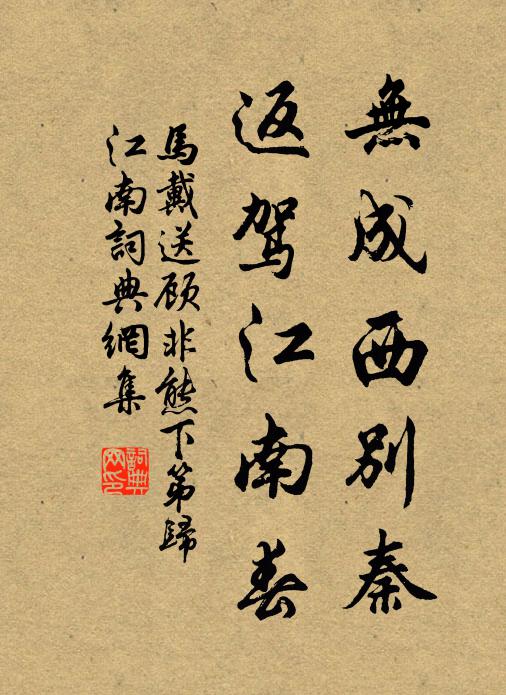 無成西別秦
返駕江南春
馬戴送顾非熊下第歸
江南詞典網集
詞典
网印